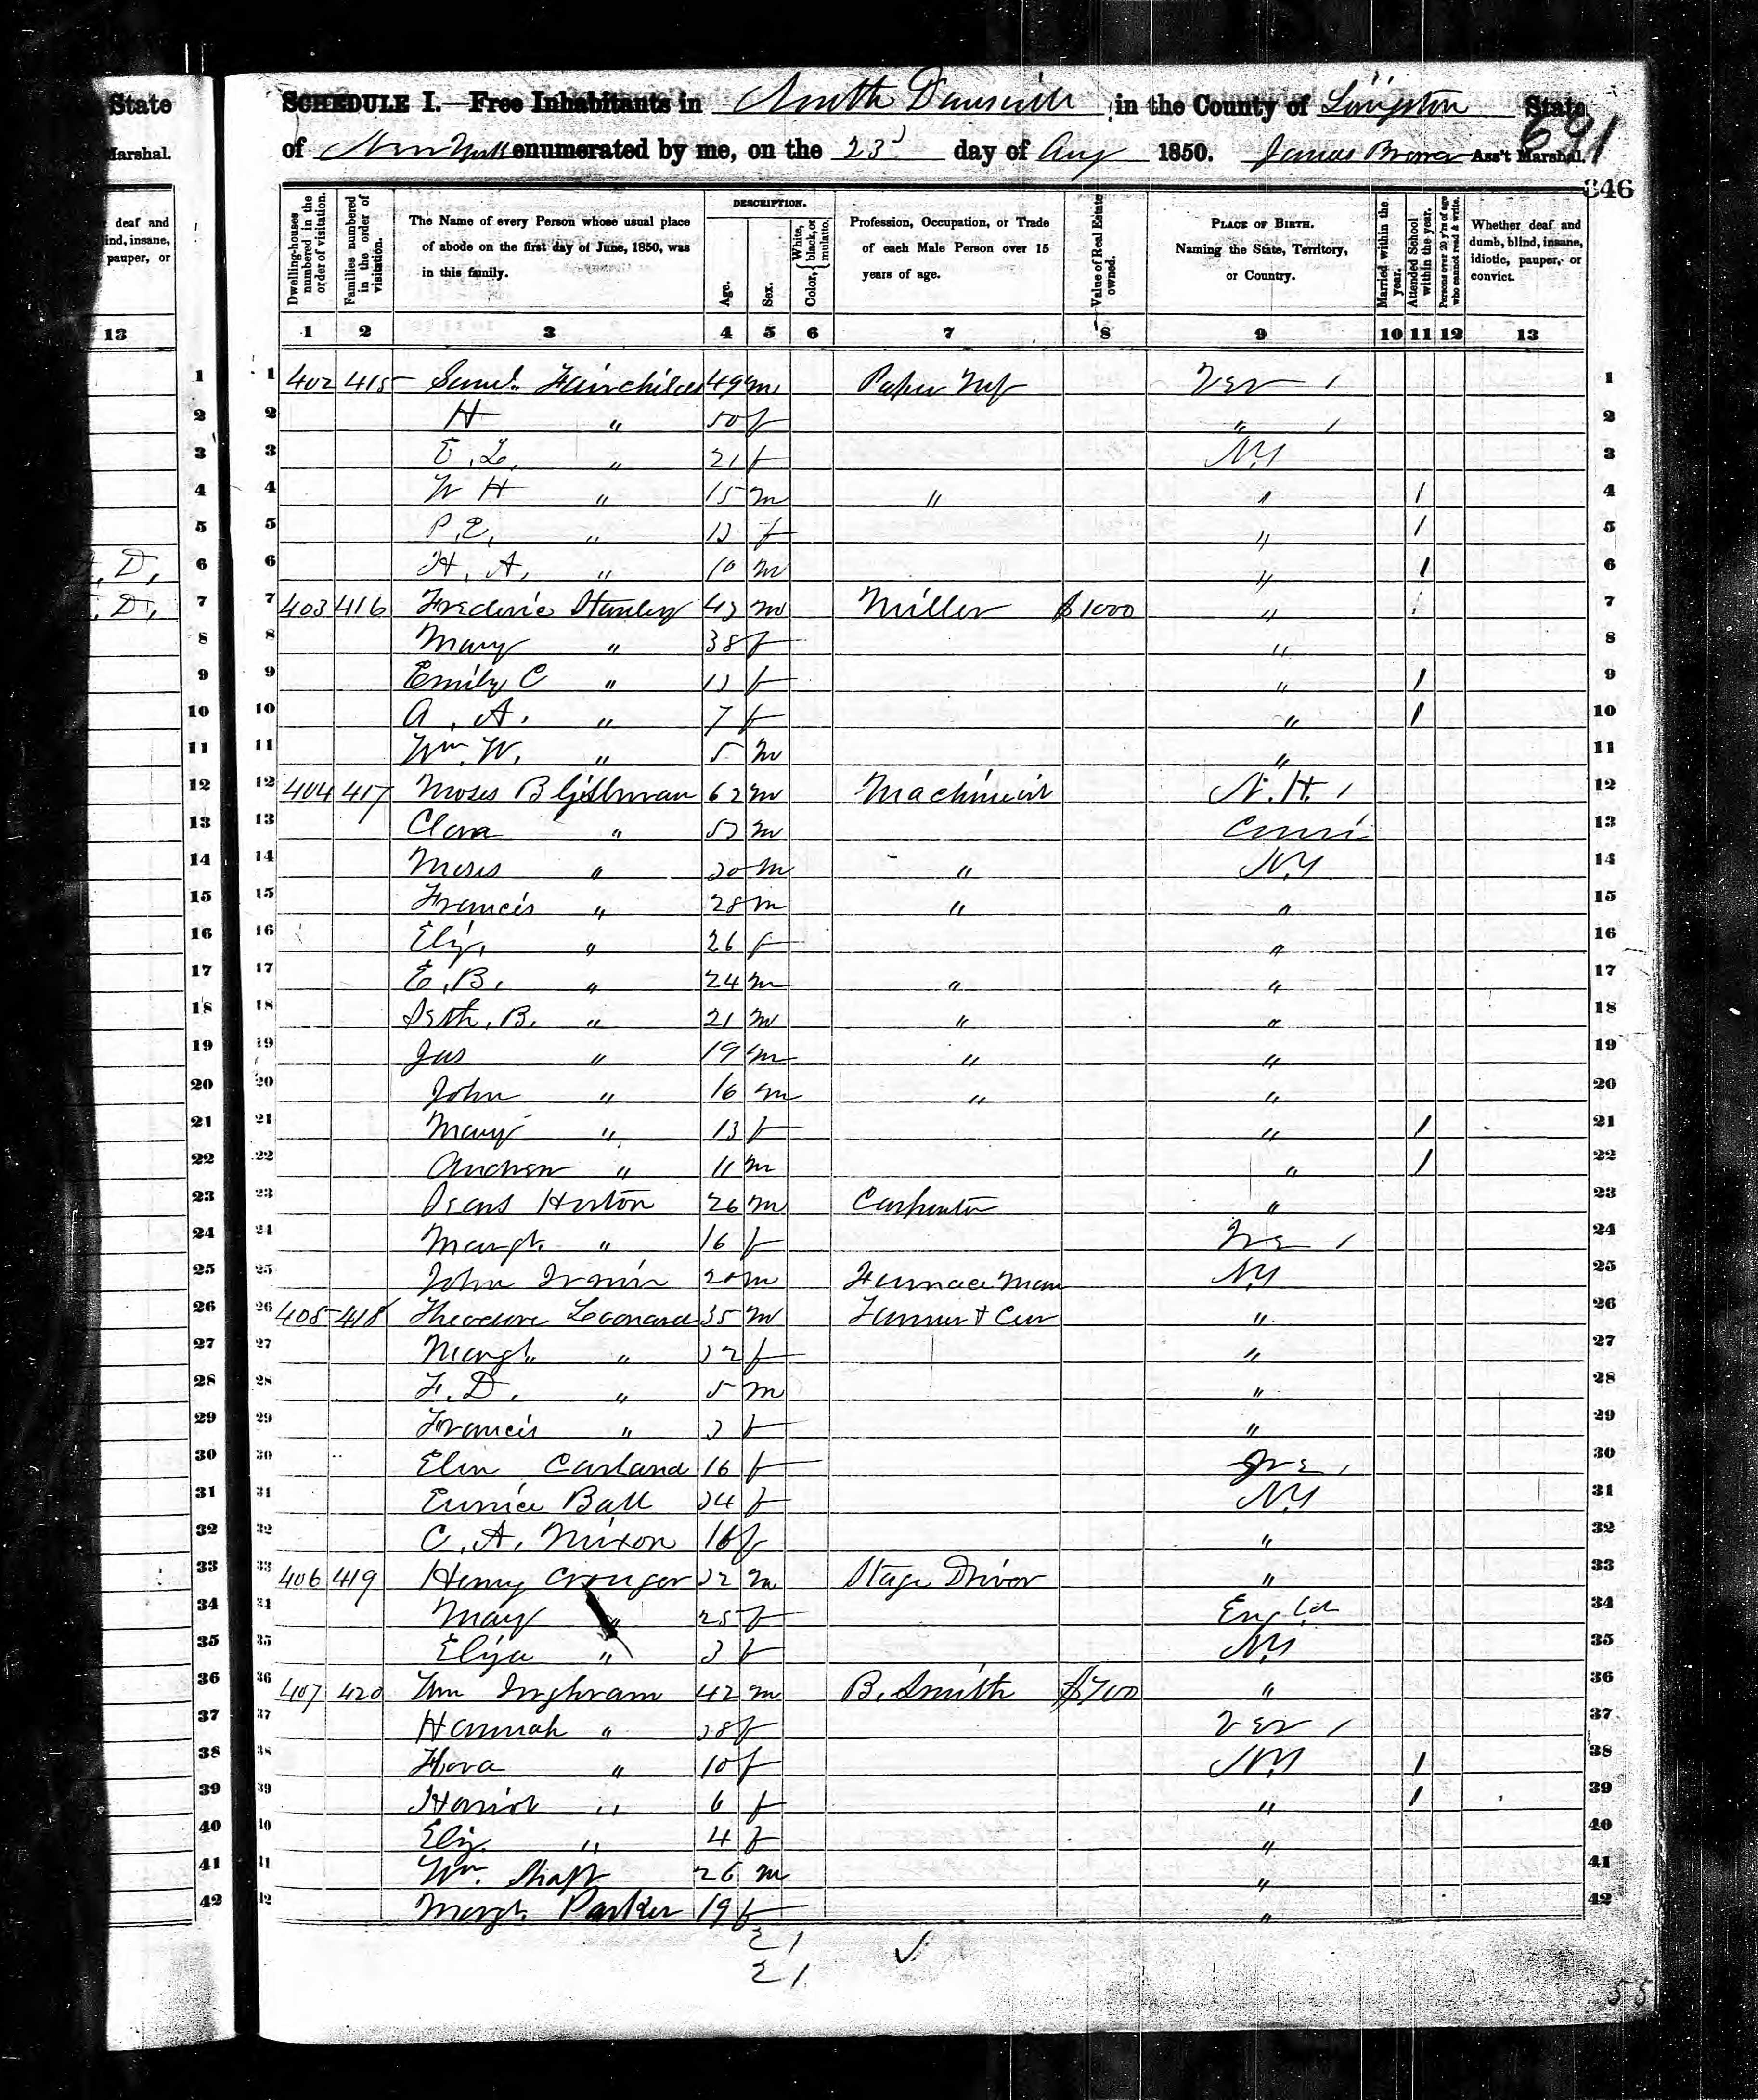 State
Marshal.
deaf and
ind, insane,
pauper, or
13
SCHEDULE I.—Free Inhabitants in North Dansville in the County of Livingston State
of New York enumerated by me, on the 23d day of Aug 1850. James Ass't Marshal.
691
346
Dwelling-houses numbered in the order of visitation.
Families numbered in the order of visitation.
The Name of every Person whose usual place of abode on the first day of June, 1850, was in this family.
DESCRIPTION.
Age.
Sex.
Color, { White, black, or mulatto.
Profession, Occupation, or Trade of each Male Person over 15 years of age.
Value of Real Estate owned.
PLACE OF BIRTH. Naming the State, Territory, or Country.
Married within the year.
Attended School within the year.
Persons over 20 y'rs of age who cannot read & write.
Whether deaf and dumb, blind, insane, idiotic, pauper, or convict.
1 2 3 4 5 6 7 8 9 10 11 12 13
1 402 415 Saml. Fairchilds 49 m Paper Mf Ver / 1
2 H " 50 f " / 2
3 E. L. " 21 f N.Y 3
4 W H " 15 m " " 1 4
5 P. E. " 13 f " 1 5
6 H. A. " 10 m " 1 6
7 403 416 Frederic Stanley 43 m Miller $1000 " 7
8 Mary " 38 f " 8
9 Emily C " 13 f " 1 9
10 A. A. " 7 f " 1 10
11 Wm. W. " 5 m " 11
12 404 417 Moses B Gillman 62 m Machinist N.H. / 12
13 Clara " 53 m Conn 13
14 Moses " 30 m " N.Y 14
15 Francis " 28 m " " 15
16 Eliz. " 26 f " 16
17 E. B. " 24 m " " 17
18 Seth. B. " 21 m " " 18
19 Jas " 19 m " " 19
20 John " 16 m " " 20
21 Mary " 13 f " 1 21
22 Andrew " 11 m " 1 22
23 Horton 26 m Carpenter " 23
24 Margt. " 16 f Ire / 24
25 John Irwin 20 m Furnace Man N.Y 25
26 405 418 Theodore Leonard 35 m Tanner & Cur " 26
27 Margt. " 32 f " 27
28 F. D. " 5 m " 28
29 Francis " 3 f " 29
30 Elen Carland 16 f Ire / 30
31 Eunice Ball 34 f N.Y 31
32 C. A. Nixon 16 f " 32
33 406 419 Henry Crouger 32 m Stage Driver " 33
34 Mary " 25 f Engld 34
35 Eliza " 3 f N.Y 35
36 407 420 Wm Inghram 42 m B. Smith $700 " 36
37 Hannah " 38 f Ver / 37
38 Flora " 10 f N.Y 1 38
39 Hariot " 6 f " 1 39
40 Eliz. " 4 f " 40
41 Wm. Shaft 26 m " 41
42 Margt. Parker 19 f " 42
21
21
55